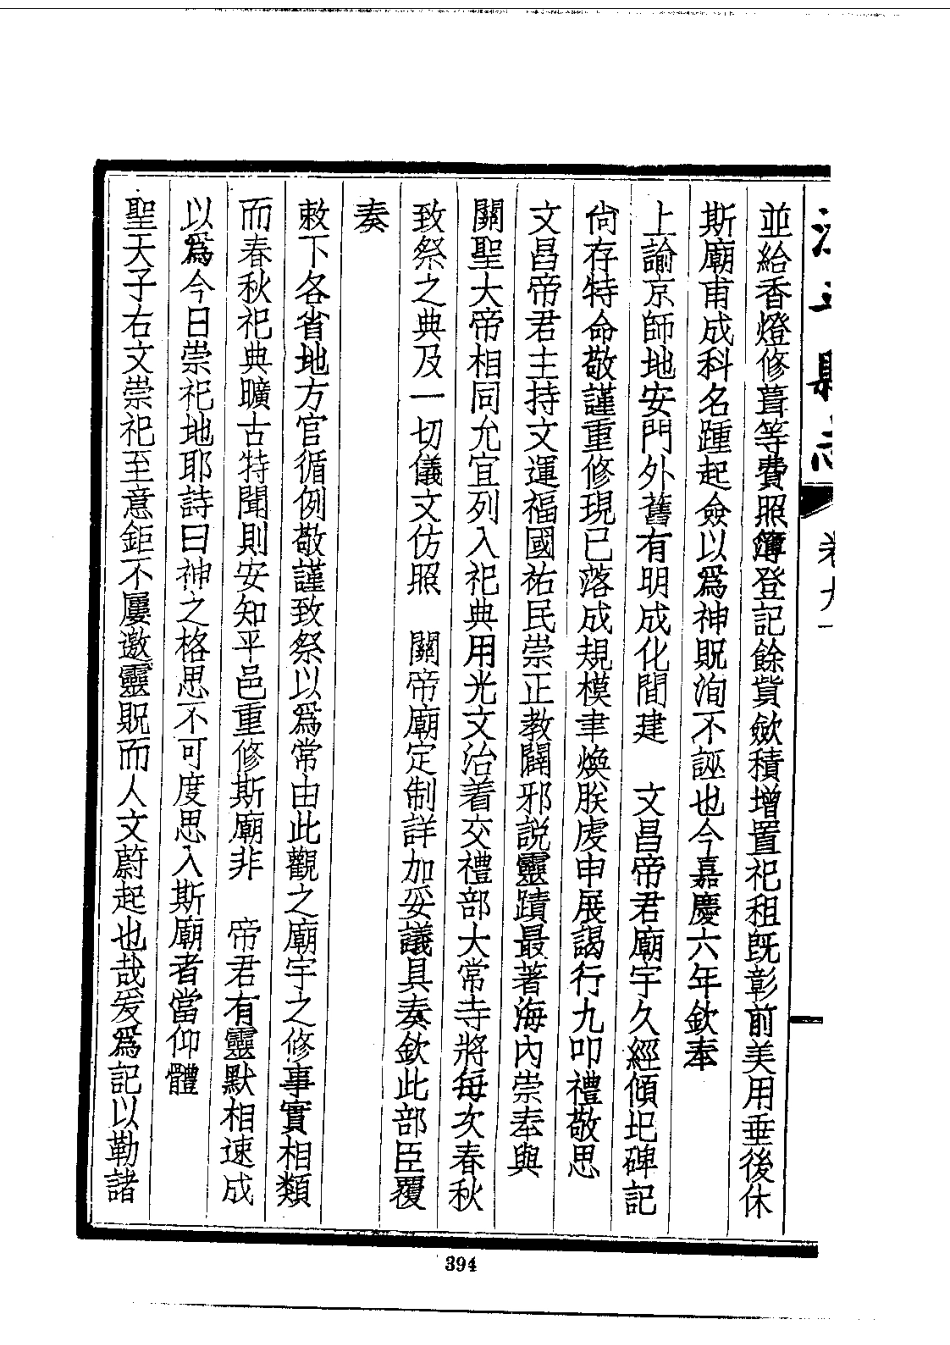 縣志 卷九
並給香燈修葺等費照簿登記餘貲歛積增置祀租既彰前美用垂後休
斯廟甫成科名踵起僉以爲神貺洵不誣也今嘉慶六年欽奉
上諭京師地安門外舊有明成化間建 文昌帝君廟宇久經傾圮碑記
尙存特命敬謹重修現已落成規模聿煥朕虔申展謁行九叩禮敬思
文昌帝君主持文運福國祐民崇正教闢邪説靈蹟最著海內崇奉與
關聖大帝相同允宜列入祀典用光文治着交禮部大常寺將每次春秋
致祭之典及一切儀文仿照 關帝廟定制詳加妥議具奏欽此部臣覆
奏
敕下各省地方官循例敬謹致祭以爲常由此觀之廟宇之修事實相類
而春秋祀典曠古特聞則安知平邑重修斯廟非 帝君有靈默相速成
以爲今日崇祀地耶詩曰神之格思不可度思入斯廟者當仰體
聖天子右文崇祀至意鉅不屢邀靈貺而人文蔚起也哉爰爲記以勒諸
394